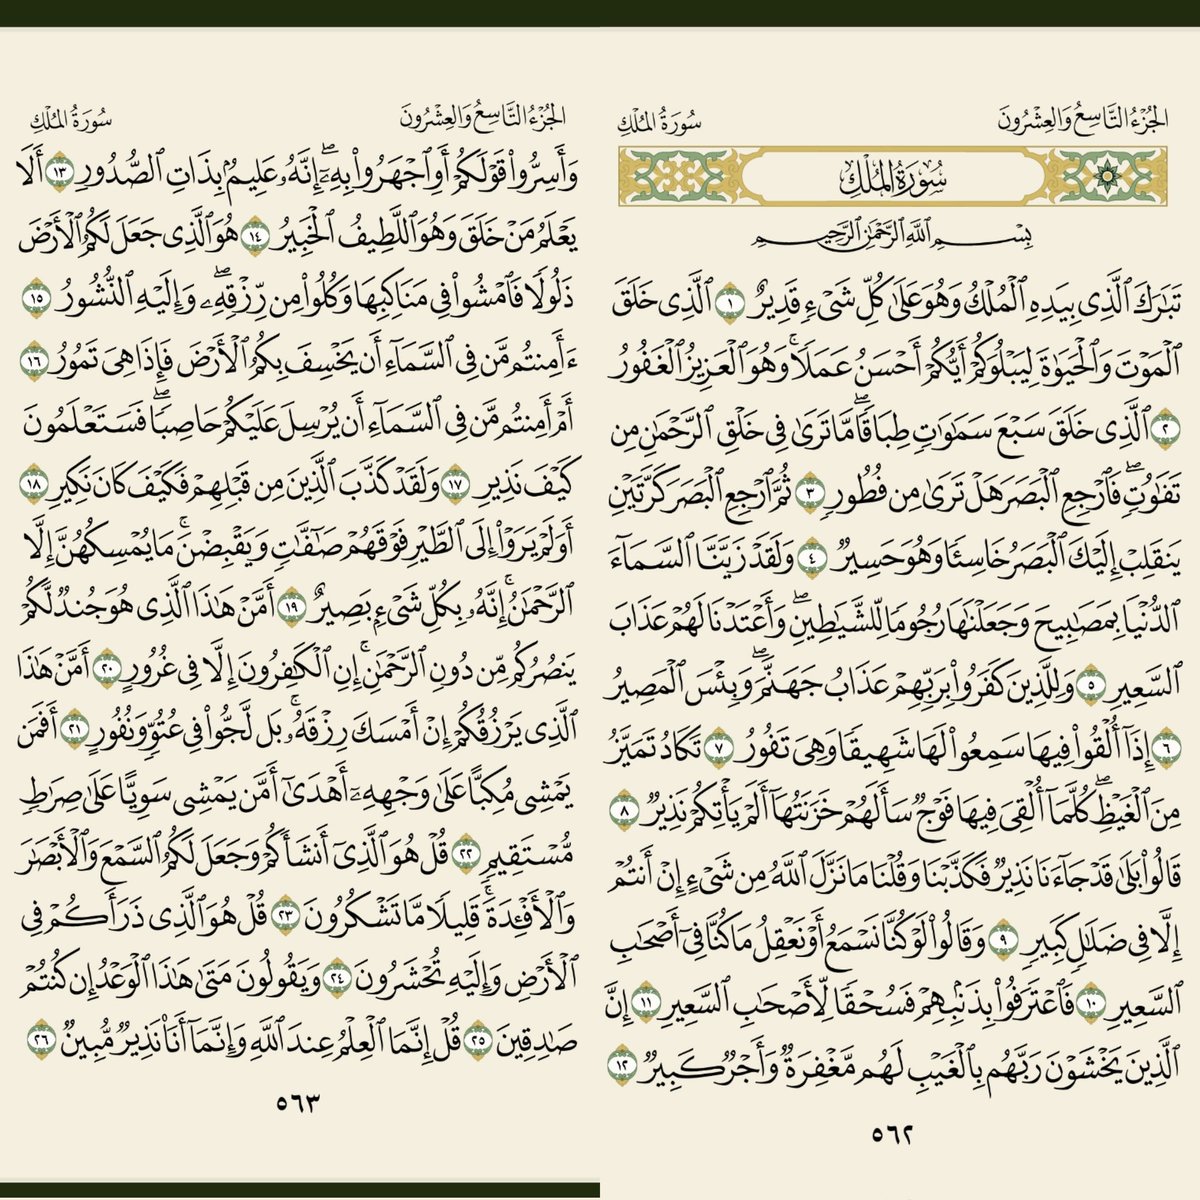 الجزء التاسع والعشرون
سورة الملك
سُورَةُ المُلْكِ
بِسْمِ ٱللَّهِ ٱلرَّحْمَٰنِ ٱلرَّحِيمِ
تَبَٰرَكَ ٱلَّذِى بِيَدِهِ ٱلْمُلْكُ وَهُوَ عَلَىٰ كُلِّ شَىْءٍ قَدِيرٌ ١ ٱلَّذِى خَلَقَ
ٱلْمَوْتَ وَٱلْحَيَوٰةَ لِيَبْلُوَكُمْ أَيُّكُمْ أَحْسَنُ عَمَلًا ۚ وَهُوَ ٱلْعَزِيزُ ٱلْغَفُورُ
٢ ٱلَّذِى خَلَقَ سَبْعَ سَمَٰوَٰتٍ طِبَاقًا ۖ مَّا تَرَىٰ فِى خَلْقِ ٱلرَّحْمَٰنِ مِن
تَفَٰوُتٍ ۖ فَٱرْجِعِ ٱلْبَصَرَ هَلْ تَرَىٰ مِن فُطُورٍ ٣ ثُمَّ ٱرْجِعِ ٱلْبَصَرَ كَرَّتَيْنِ
يَنقَلِبْ إِلَيْكَ ٱلْبَصَرُ خَاسِئًا وَهُوَ حَسِيرٌ ٤ وَلَقَدْ زَيَّنَّا ٱلسَّمَآءَ
ٱلدُّنْيَا بِمَصَٰبِيحَ وَجَعَلْنَٰهَا رُجُومًا لِّلشَّيَٰطِينِ ۖ وَأَعْتَدْنَا لَهُمْ عَذَابَ
ٱلسَّعِيرِ ٥ وَلِلَّذِينَ كَفَرُوا۟ بِرَبِّهِمْ عَذَابُ جَهَنَّمَ ۖ وَبِئْسَ ٱلْمَصِيرُ
٦ إِذَآ أُلْقُوا۟ فِيهَا سَمِعُوا۟ لَهَا شَهِيقًا وَهِىَ تَفُورُ ٧ تَكَادُ تَمَيَّزُ
مِنَ ٱلْغَيْظِ ۖ كُلَّمَآ أُلْقِىَ فِيهَا فَوْجٌ سَأَلَهُمْ خَزَنَتُهَآ أَلَمْ يَأْتِكُمْ نَذِيرٌ ٨
قَالُوا۟ بَلَىٰ قَدْ جَآءَنَا نَذِيرٌ فَكَذَّبْنَا وَقُلْنَا مَا نَزَّلَ ٱللَّهُ مِن شَىْءٍ إِنْ أَنتُمْ
إِلَّا فِى ضَلَٰلٍ كَبِيرٍ ٩ وَقَالُوا۟ لَوْ كُنَّا نَسْمَعُ أَوْ نَعْقِلُ مَا كُنَّا فِىٓ أَصْحَٰبِ
ٱلسَّعِيرِ ١٠ فَٱعْتَرَفُوا۟ بِذَنۢبِهِمْ فَسُحْقًا لِّأَصْحَٰبِ ٱلسَّعِيرِ ١١ إِنَّ
ٱلَّذِينَ يَخْشَوْنَ رَبَّهُم بِٱلْغَيْبِ لَهُم مَّغْفِرَةٌ وَأَجْرٌ كَبِيرٌ ١٢
٥٦٢
الجزء التاسع والعشرون
سورة الملك
وَأَسِرُّوا۟ قَوْلَكُمْ أَوِ ٱجْهَرُوا۟ بِهِۦٓ ۖ إِنَّهُۥ عَلِيمٌۢ بِذَاتِ ٱلصُّدُورِ ١٣ أَلَا
يَعْلَمُ مَنْ خَلَقَ وَهُوَ ٱللَّطِيفُ ٱلْخَبِيرُ ١٤ هُوَ ٱلَّذِى جَعَلَ لَكُمُ ٱلْأَرْضَ
ذَلُولًا فَٱمْشُوا۟ فِى مَنَاكِبِهَا وَكُلُوا۟ مِن رِّزْقِهِۦ ۖ وَإِلَيْهِ ٱلنُّشُورُ ١٥
ءَأَمِنتُم مَّن فِى ٱلسَّمَآءِ أَن يَخْسِفَ بِكُمُ ٱلْأَرْضَ فَإِذَا هِىَ تَمُورُ ١٦
أَمْ أَمِنتُم مَّن فِى ٱلسَّمَآءِ أَن يُرْسِلَ عَلَيْكُمْ حَاصِبًا ۖ فَسَتَعْلَمُونَ
كَيْفَ نَذِيرِ ١٧ وَلَقَدْ كَذَّبَ ٱلَّذِينَ مِن قَبْلِهِمْ فَكَيْفَ كَانَ نَكِيرِ ١٨
أَوَلَمْ يَرَوْا۟ إِلَى ٱلطَّيْرِ فَوْقَهُمْ صَٰٓفَّٰتٍ وَيَقْبِضْنَ ۚ مَا يُمْسِكُهُنَّ إِلَّا
ٱلرَّحْمَٰنُ ۚ إِنَّهُۥ بِكُلِّ شَىْءٍۭ بَصِيرٌ ١٩ أَمَّنْ هَٰذَا ٱلَّذِى هُوَ جُندٌ لَّكُمْ
يَنصُرُكُم مِّن دُونِ ٱلرَّحْمَٰنِ ۚ إِنِ ٱلْكَٰفِرُونَ إِلَّا فِى غُرُورٍ ٢٠ أَمَّنْ هَٰذَا
ٱلَّذِى يَرْزُقُكُمْ إِنْ أَمْسَكَ رِزْقَهُۥ ۚ بَل لَّجُّوا۟ فِى عُتُوٍّ وَنُفُورٍ ٢١ أَفَمَن
يَمْشِى مُكِبًّا عَلَىٰ وَجْهِهِۦٓ أَهْدَىٰٓ أَمَّن يَمْشِى سَوِيًّا عَلَىٰ صِرَٰطٍ
مُّسْتَقِيمٍ ٢٢ قُلْ هُوَ ٱلَّذِىٓ أَنشَأَكُمْ وَجَعَلَ لَكُمُ ٱلسَّمْعَ وَٱلْأَبْصَٰرَ
وَٱلْأَفْـِٔدَةَ ۖ قَلِيلًا مَّا تَشْكُرُونَ ٢٣ قُلْ هُوَ ٱلَّذِى ذَرَأَكُمْ فِى
ٱلْأَرْضِ وَإِلَيْهِ تُحْشَرُونَ ٢٤ وَيَقُولُونَ مَتَىٰ هَٰذَا ٱلْوَعْدُ إِن كُنتُمْ
صَٰدِقِينَ ٢٥ قُلْ إِنَّمَا ٱلْعِلْمُ عِندَ ٱللَّهِ وَإِنَّمَآ أَنَا۠ نَذِيرٌ مُّبِينٌ ٢٦
٥٦٣